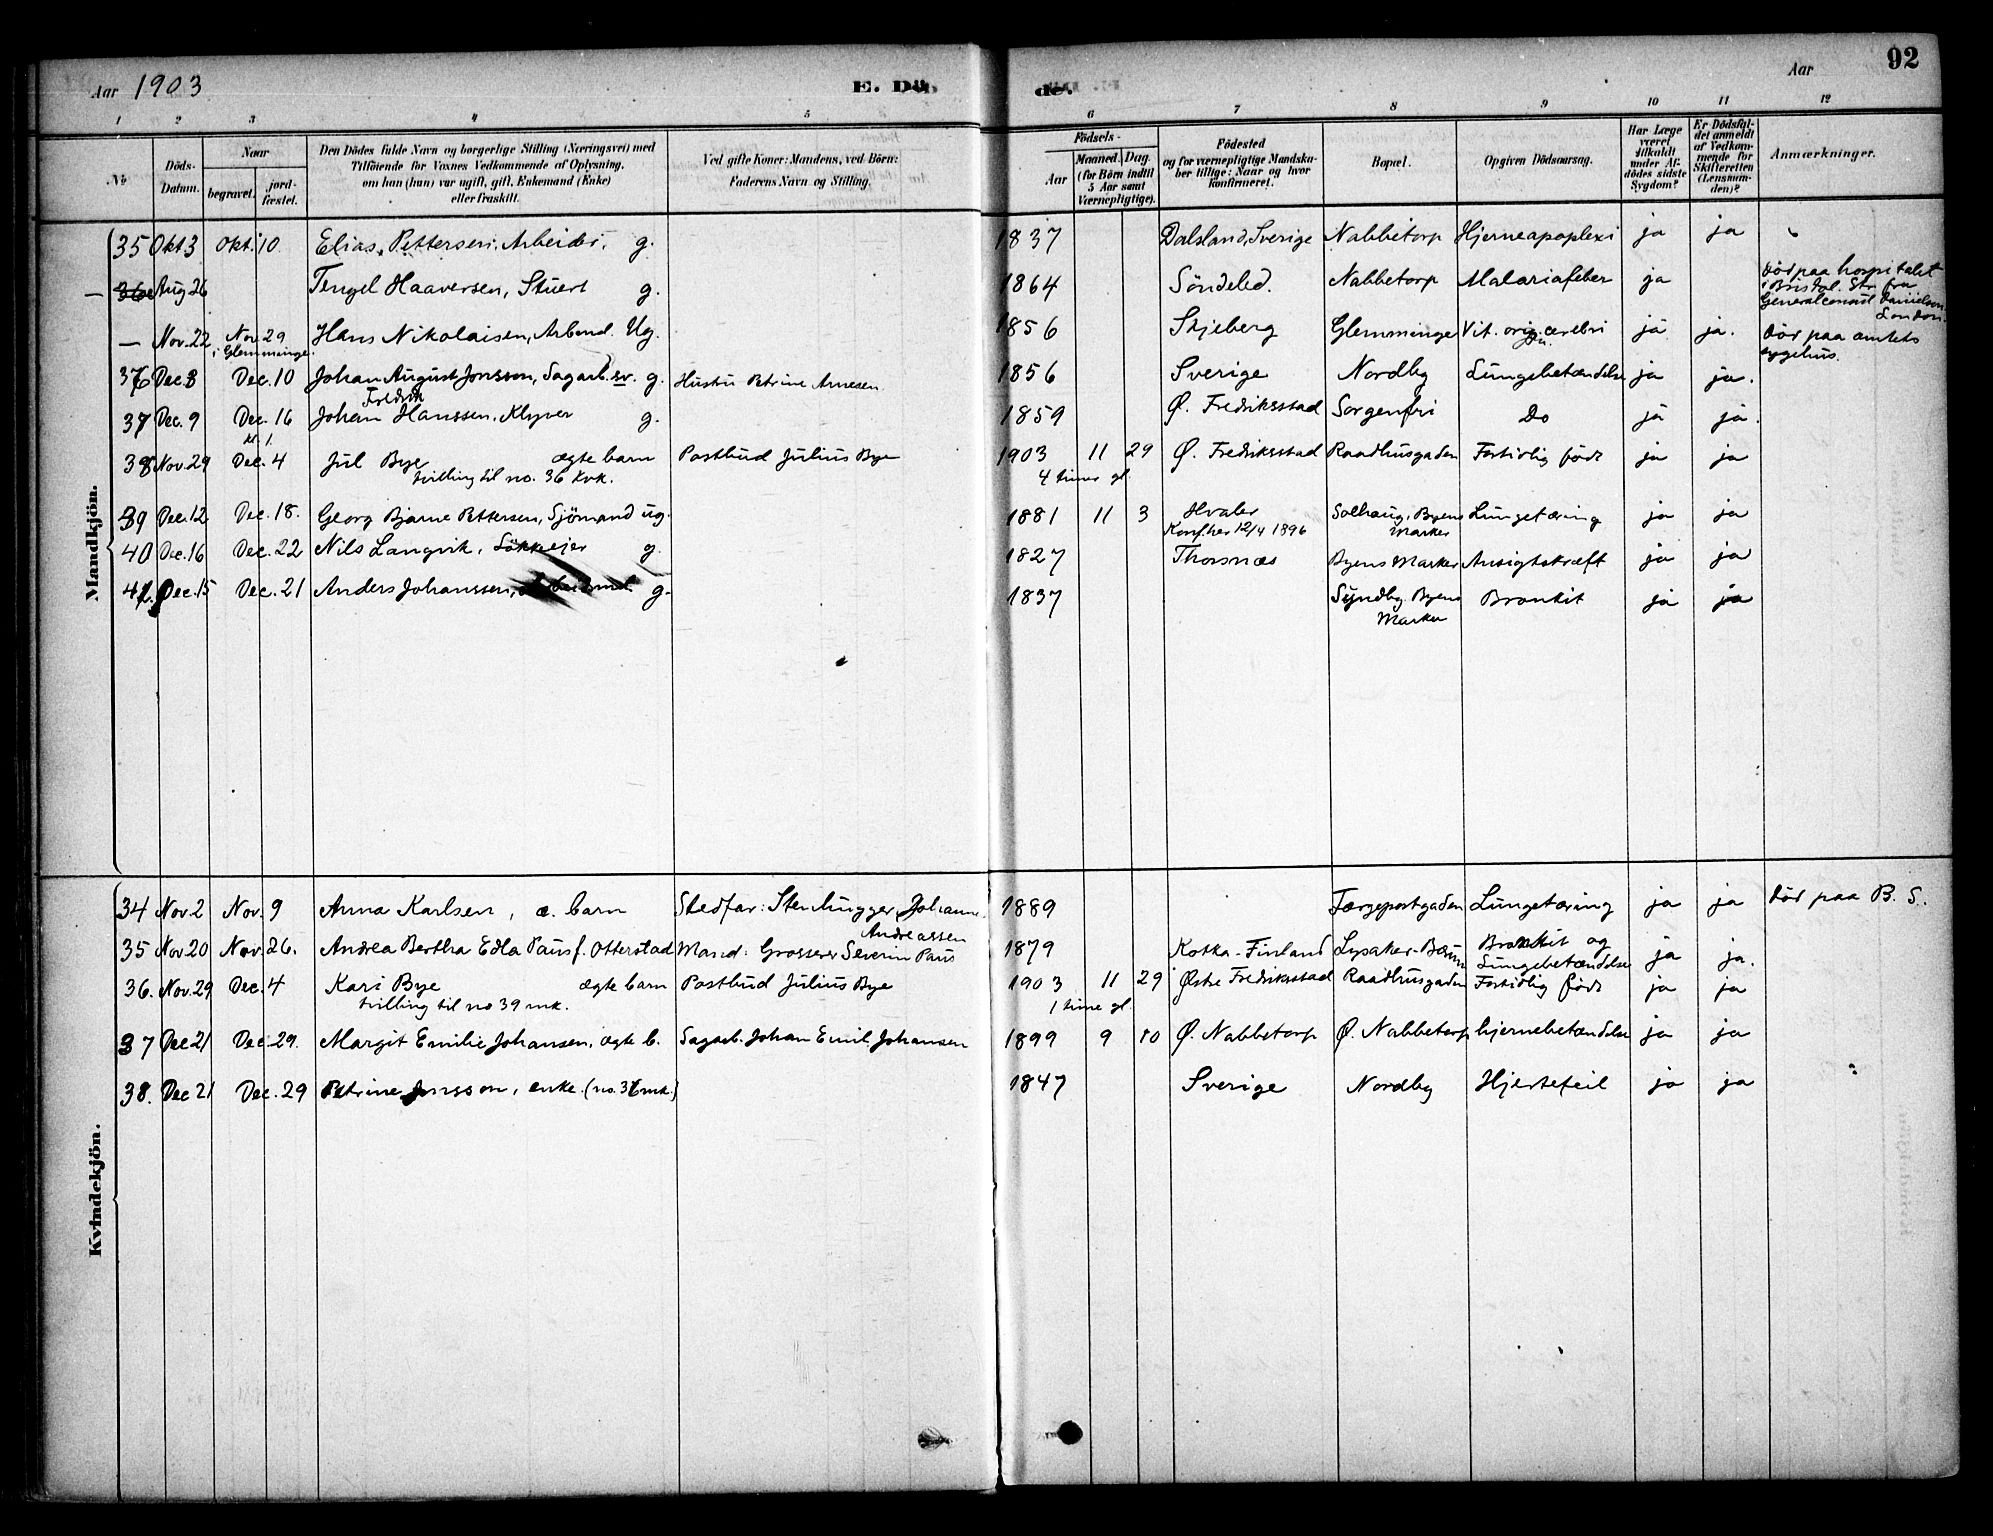 Aar 1903 E. Dö-
de. Aar 92
1 2 3 4 5 6 7 8 9 10 11 12
No
Döds-Datum.
Naar
begravet.
jord-fæstet.
Den Dödes fulde Navn og borgerlige Stilling (Næringsvei) med
Tilföiende for Voxnes Vedkommende af Oplysning,
om han (hun) var ugift, gift, Enkemand (Enke)
eller fraskilt.
Ved gifte Koner: Mandens, ved Börn:
Faderens Navn og Stilling.
Födsels-
Aar
Maaned. Dag.
(for Börn indtil
5 Aar samt
Værnepligtige).
Födested
og for værnepligtige Mandska-
ber tillige: Naar og hvor
konfirmeret.
Bopæl.
Opgiven Dödsaarsag.
Har Læge
været
tilkaldt
under Af-
dödes sidste
Sygdom?
Er Dödsfal-
det anmeldt
af Vedkom-
mende for
Skifteretten
(Lensman-
den)?
Anmærkninger.
Mandkjön.
35 Okt 3 Okt. 10 Elias Pettersen, Arbeider, g. 1837 Dalsland, Sverige Nabbetorp Hjerneapoplexi ja ja
— 36 Aug 26 Tengel Haaversen, Stuert g. 1864 Söndeled. Nabbetorp Malariafeber ja död paa hospitalet
i Bristol. Str. fra
Generalconsul Danielsen
London.
— Nov. 22 Nov. 29 Hans Nikolaisen, Arbmd. Ug. 1856 Skjeberg Glemminge Vit. orig. cerebri ja ja. död paa amtets
i Glemminge. sygehus.
36 Dec. 3 Dec. 10 Johan August Jonsson, Sagarb. sv. g. Hustru Petrine Arnesen 1856 Sverige Nordby Lungebetændelse ja ja.
Fredrik
37 Dec. 9 Dec. 16 Johan Hanssen, Klyver g. 1859 Ø. Fredriksstad Sorgenfri Do ja ja.
kl. 1.
38 Nov. 29 Dec. 4 Jul Bye ægte barn Postbud Julius Bye 1903 11 29 Ø. Fredriksstad Raadhusgaden Fortidlig födt ja ja
tvilling til no. 36 kvk. 4 timer gl.
39 Dec. 12 Dec. 18. Georg Bjarne Pettersen, Sjömand ug. 1881 11 3 Hvaler Solhaug, Byens Lungetæring ja ja
Konf. her 12/4 1896 Marker
40 Dec. 16 Dec. 22 Nils Langvik, g. 1827 Thorsnæs Byens Marker Ansigtskræft ja ja
41. Dec. 15 Dec. 21 Anders Johanssen, Arbeidsmd. g. 1837 Sundby Byens Bronkit ja ja
Marker
Kvindekjön.
34 Nov. 2 Nov. 9 Anna Karlsen, æ. barn Stedfar: Stenhugger Johannes 1889 Færgeportgaden Lungetæring ja ja död paa B. S.
Andreassen
35 Nov. 20 Nov. 26. Andrea Bertha Edla Paus f. Otterstad Mand: Grosserer Severin Paus 1879 Kotka - Finland Lysaker - Bærum Bronkit og ja ja.
Lungebetændelse
36. Nov. 29 Dec. 4 Kari Bye ægte barn Postbud Julius Bye 1903 11 29 Østre Fredriksstad Raadhusgaden Fortidlig födt ja ja
tvilling til no 39 mk. 1 time gl.
37 Dec 21 Dec. 29. Margit Emilie Johansen, ægte b. Sagarb. Johan Emil Johansen 1899 9 10 Ø. Nabbetorp Ø. Nabbetorp hjernebetændelse ja ja
38. Dec 21 Dec. 29 Petrine Jonsson, enke. (no. 36 mk.) 1847 Sverige Nordby Hjertefeil ja ja